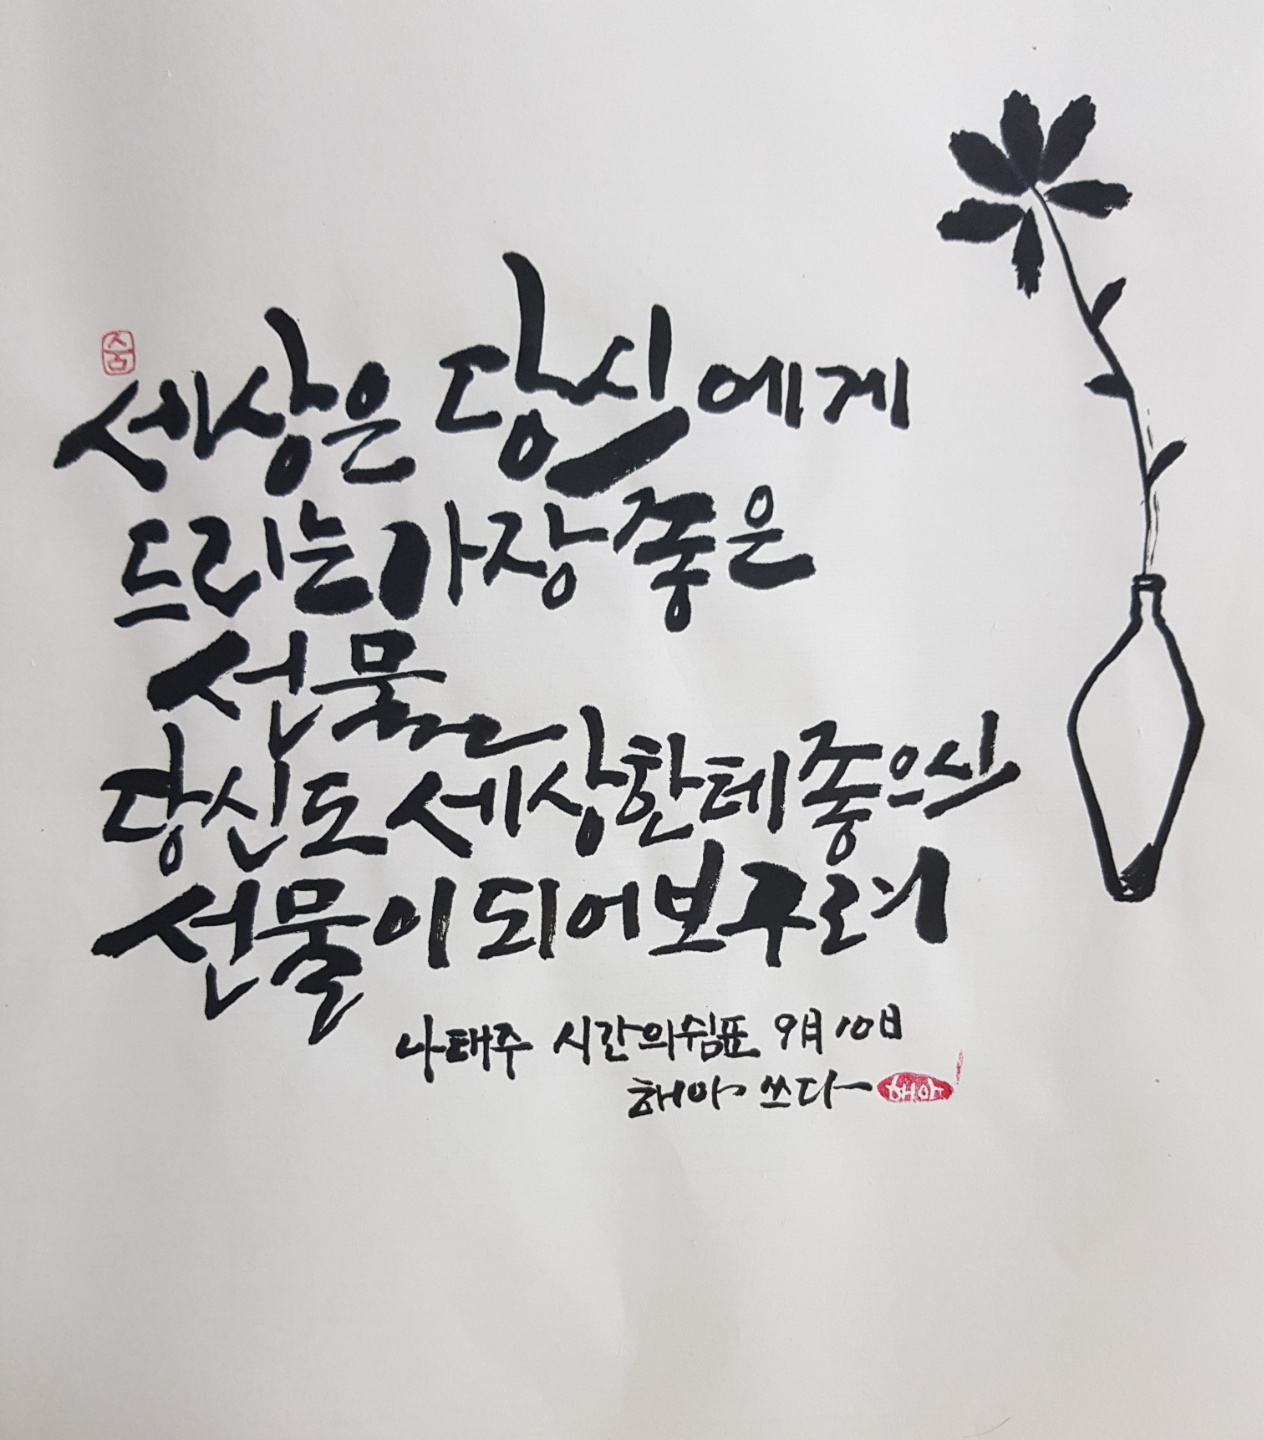 숨
세상은 당신에게
드리는 가장 좋은
선물
당신도 세상한테 좋으신
선물이 되어보구려
나태주 시간의쉼표 9月10日
해아 쓰다 해아